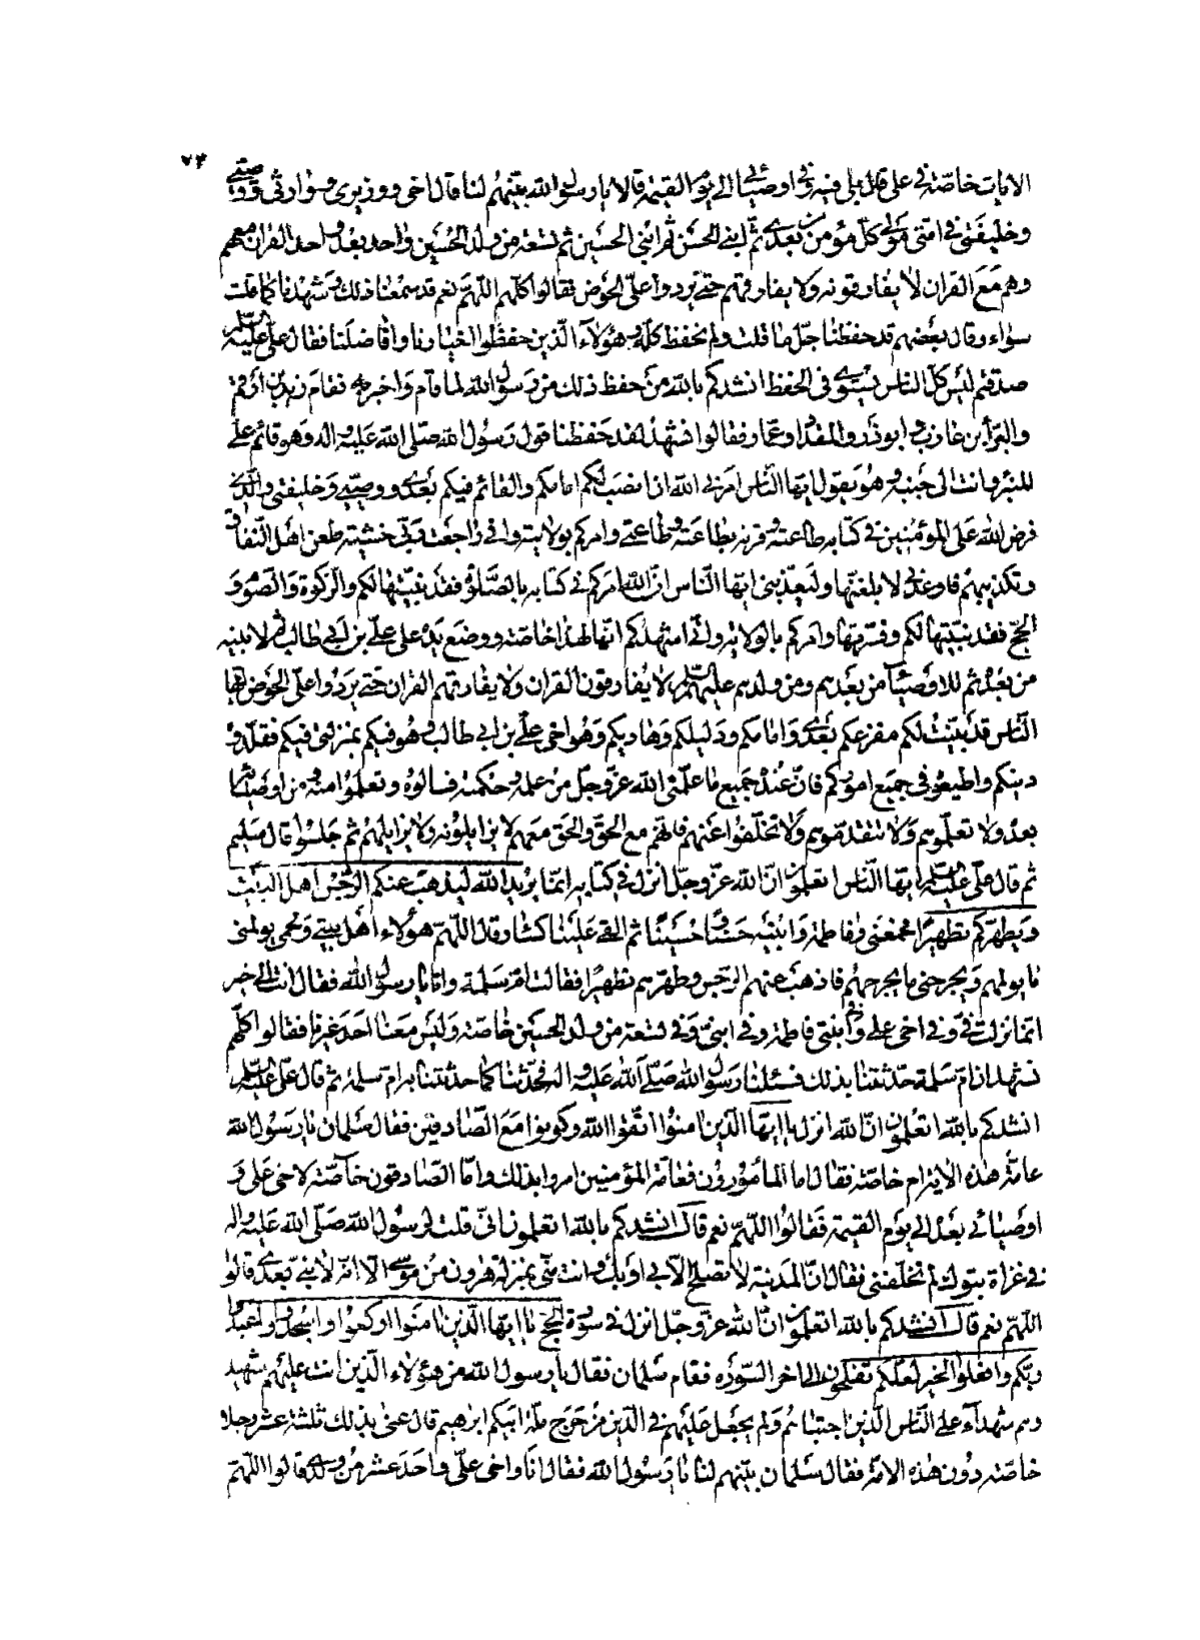 ٧٣
الايات خاصّة في علي قال بلى فيه وفي اوصيائي الى يوم القيمة قالا يا رسول الله بيّنهم لنا قال اخي ووزيري ووارثي ووصيّي
وخليفتي في امّتي ومولى كلّ مؤمن بعدي ثمّ ابني الحسن ثم ابني الحسين ثم تسعة من ولد الحسين واحد بعد واحد القران معهم
وهم مع القران لا يفارقونه ولا يفارقهم حتى يردوا عليّ الحوض فقالوا كلّهم اللّهمّ نعم قد سمعنا ذلك وشهدنا كما قلت
سواء وقال بعضهم قد حفظنا جلّ ما قلت ولم نحفظ كلّه وهؤلاء الّذين حفظوا اخيارنا وافاضلنا فقال علي عليه السلم
صدقتم ليس كلّ الناس يستوي في الحفظ انشدكم بالله من حفظ ذلك من رسول الله لما قام واخبر به فقام زيد بن ارقم
والبرآ بن عازب وابو ذر والمقداد وعمار فقالوا نشهد لقد حفظنا قول رسول الله صلى الله عليه واله وهو قائم على
المنبر وانت الى جنبه وهو يقول ايها النّاس امرني الله ان انصب لكم امامكم والقائم فيكم بعدي ووصيّي وخليفتي والّذي
فرض الله على المؤمنين في كتابه طاعته وقرنه بطاعته وطاعتي وامركم بولايته واني راجعت ربّي خشية طعن اهل النّفاق
وتكذيبهم فاوعدني لا بلغنّها او ليعذّبني ايها النّاس انّ الله امركم في كتابه بالصّلوة فقد بيّنتها لكم والزّكوة والصّوم و
الحجّ فقد بيّنتها لكم وفسّرتها وامركم بالولاية واني اشهدكم انّها لهذا خاصّة ووضع يده على علي بن ابي طالب ثم لابنيه
من بعده ثم للاوصيآء من بعدهم ومن ولدهم عليهم السلم لا يفارقون القران ولا يفارقهم القران حتى يردوا عليّ الحوض ايها
النّاس قد بيّنت لكم مفزعكم بعدي وامامكم ودليلكم وهاديكم وهو اخي علي بن ابي طالب وهو فيكم بمنزلتي فيكم فقلّدوه
دينكم واطيعوه في جميع اموركم فانّ عنده جميع ما علّمني الله عزّ وجلّ من علمه وحكمته فسالوه وتعلّموا منه ومن اوصيائه
بعده ولا تعلّموهم ولا تتقدّموهم ولا تخلّفوا عنهم فانّهم مع الحق والحق معهم لا يزايلونه ولا يزايلهم ثم جلسوا قال سليم
ثم قال علي عليه السلم ايها النّاس اتعلمون انّ الله عزّ وجلّ انزل في كتابه انّما يريد الله ليذهب عنكم الرّجس اهل البيت
ويطهّركم تطهيرا فجمعني وفاطمة وابنيه حسنًا وحسينًا ثم القى علينا كساء وقال اللّهمّ هؤلاء اهل بيتي ولحمي يولمني
ما يولمهم ويجرحني ما يجرحهم فاذهب عنهم الرّجس وطهّرهم تطهيرًا فقالت امّ سلمة وانا يا رسول الله فقال انت الى خير
انّما نزلت فيّ وفي اخي علي وفي ابنتي فاطمة وفي ابنيّ وفي تسعة من ولد الحسين خاصّة وليس معنا احد غيرنا فقالوا كلّهم
نشهد انّ امّ سلمة حدّثتنا بذلك فسئلنا رسول الله صلّى الله عليه واله فحدّثنا كما حدّثتنا به ام سلمة ثم قال علي عليه السلم
انشدكم بالله اتعلمون انّ الله انزل يا ايها الّذين امنوا اتّقوا الله وكونوا مع الصّادقين فقال سلمان يا رسول الله
عامّة هذه الاية ام خاصّة فقال اما المأمورون فعامّة المؤمنين امروا بذلك وامّا الصّادقون خآصّة لاخي علي و
اوصيائي بعده الى يوم القيمة فقالوا اللّهمّ نعم قال انشدكم بالله اتعلمون انّي قلت لرسول الله صلّى الله عليه واله
في غزاة تبوك لم تخلّفني فقال انّ المدينة لا تصلح الّا بي او بك وانت منّي بمنزلة هرون من موسى الّا انّه لا نبيّ بعدي قالوا
اللّهمّ نعم قال انشدكم بالله اتعلمون انّ الله عزّ وجلّ انزل في سورة الحجّ يا ايها الّذين امنوا اركعوا واسجدوا واعبدوا
ربّكم وافعلوا الخير لعلّكم تفلحون الى اخر السّورة فقام سلمان فقال يا رسول الله من هؤلاء الّذين انت عليهم شهيد
وهم شهدآء على النّاس الّذين اجتباهم ولم يجعل عليهم في الدّين من حرج ملّة ابيكم ابرهيم قال عنى بذلك ثلثة عشر رجلا
خاصّة دون هذه الامّة فقال سلمان بيّنهم لنا يا رسول الله فقال انا واخي عليّ واحد عشر من ولدي قالوا اللّهمّ